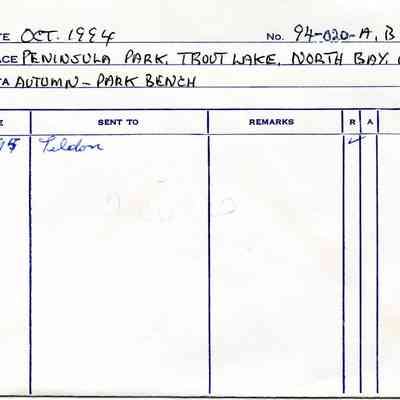 TE OCT. 1994 NO. 94-020-A, B
ACE PENINSULA PARK, TROUT LAKE, NORTH BAY,
TA AUTUMN - PARK BENCH
E SENT TO REMARKS R A
95 Teldon ✓